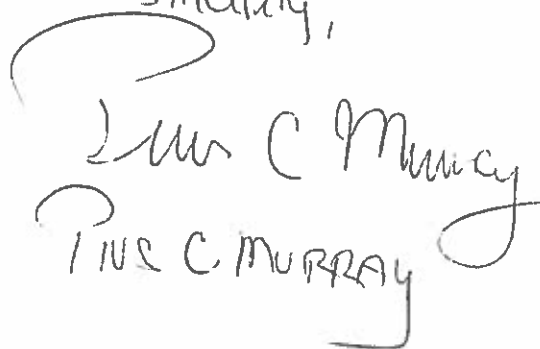 Sincerely,
Pius C Murray
PIUS C. MURRAY